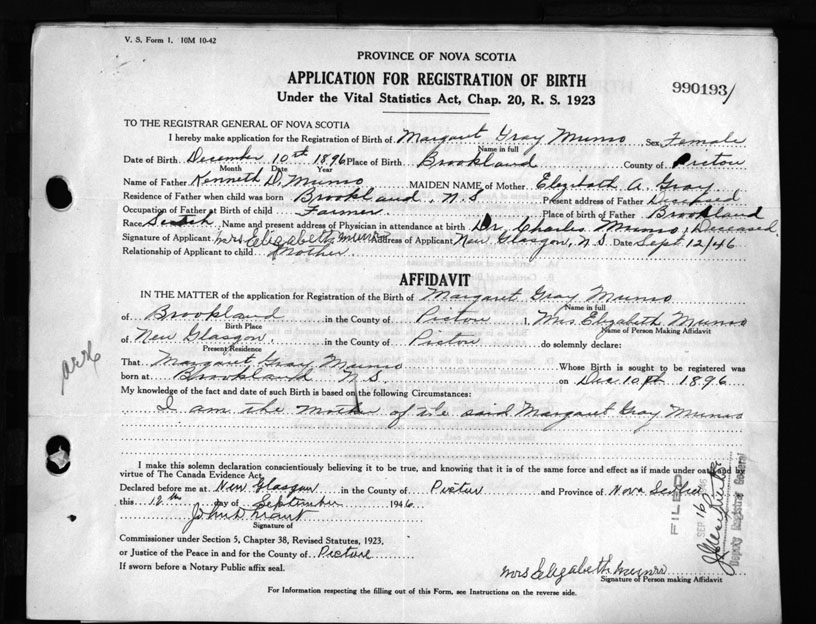 V. S. Form 1. 10M 10-42
PROVINCE OF NOVA SCOTIA
APPLICATION FOR REGISTRATION OF BIRTH
990193/
Under the Vital Statistics Act, Chap. 20, R. S. 1923
TO THE REGISTRAR GENERAL OF NOVA SCOTIA
I hereby make application for the Registration of Birth of Margaret Gray Munro Sex Female
Name in full
Date of Birth December 10th 1896 Place of Birth Brookland County of Pictou
Month Date Year
Name of Father Kenneth D. Munro MAIDEN NAME of Mother Elizabeth A. Gray
Residence of Father when child was born Brookland, N.S. Present address of Father Deceased
Occupation of Father at Birth of child Farmer. Place of birth of Father Brookland
Race Scotch Name and present address of Physician in attendance at birth Dr. Charles Munro, Deceased.
Signature of Applicant Mrs Elizabeth Munro Address of Applicant New Glasgow, N.S. Date Sept 12/46
Relationship of Applicant to child Mother.
AFFIDAVIT
IN THE MATTER of the application for Registration of the Birth of Margaret Gray Munro
Name in full
of Brookland in the County of Pictou I, Mrs. Elizabeth Munro
Birth Place Name of Person Making Affidavit
of New Glasgow, in the County of Pictou do solemnly declare:
Present Residence
That Margaret Gray Munro Whose Birth is sought to be registered was
born at Brookland N.S. on Dec. 10th 1896
My knowledge of the fact and date of such Birth is based on the following Circumstances:
I am the Mother of the said Margaret Gray Munro
I make this solemn declaration conscientiously believing it to be true, and knowing that it is of the same force and effect as if made under oath and by
virtue of The Canada Evidence Act.
Declared before me at New Glasgow in the County of Pictou and Province of Nova Scotia
this 12th day of September 1946
Signature of
Commissioner under Section 5, Chapter 38, Revised Statutes, 1923,
or Justice of the Peace in and for the County of Pictou
If sworn before a Notary Public affix seal.
Mrs Elizabeth Munro
Signature of Person making Affidavit
For Information respecting the filling out of this Form, see Instructions on the reverse side.
FILED
SEP 16
Deputy Registrar General